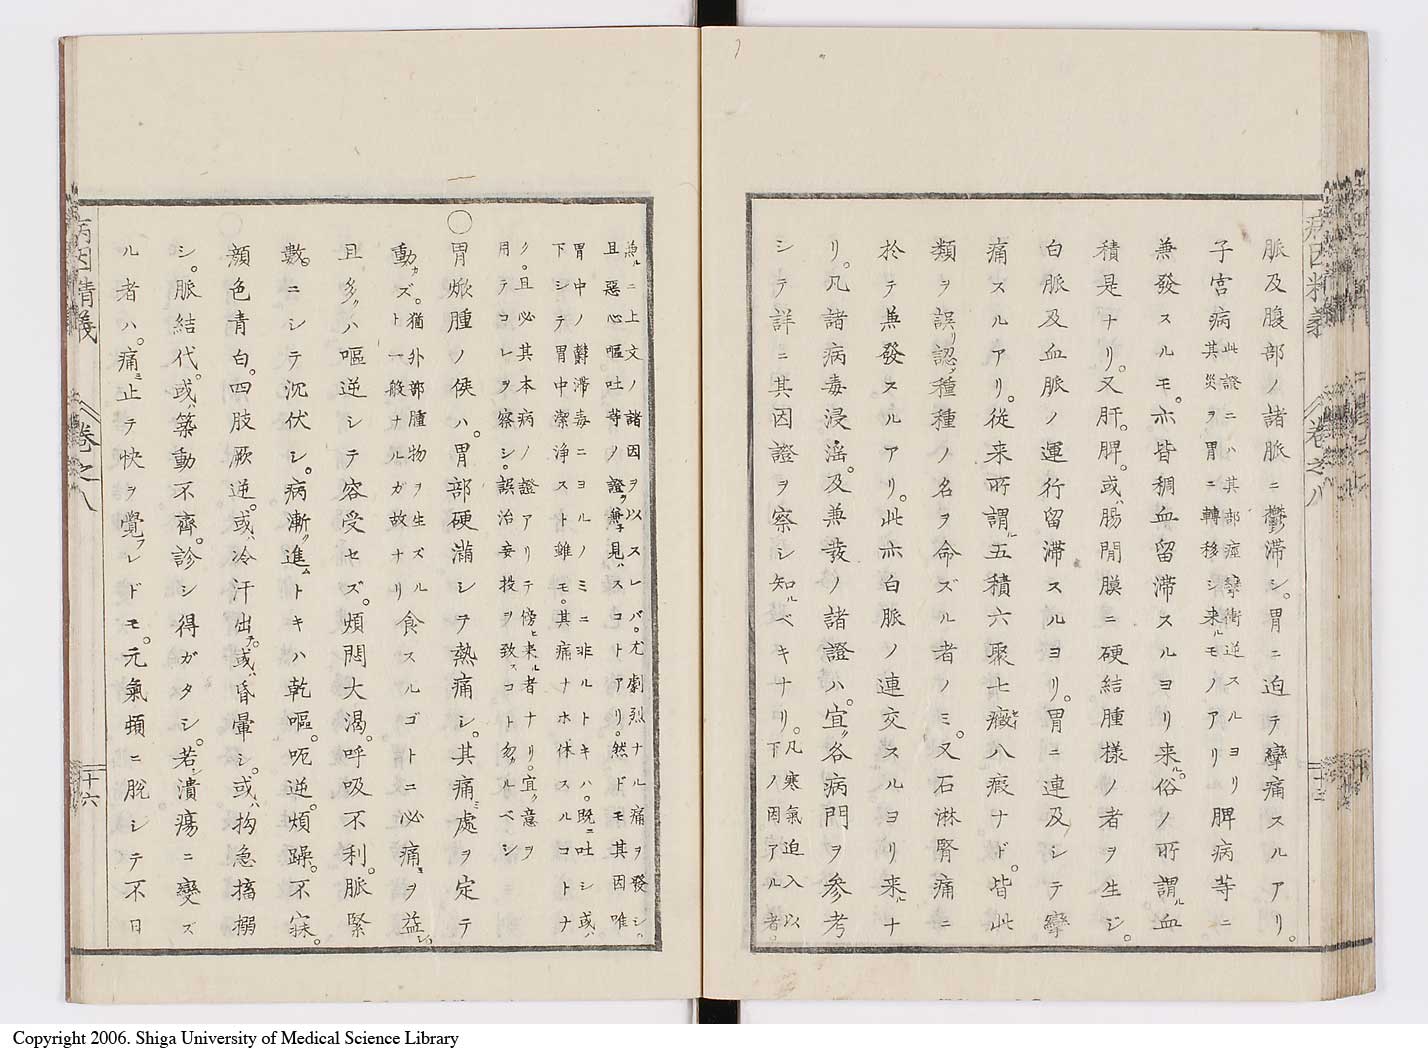 脈及腹部ノ諸脈ニ鬱滞シ。胃ニ迫テ攣痛スルアリ。
子宮病此證ニハ其部痙攣衝逆スルヨリ脾病等ニ
其災ヲ胃ニ轉移シ来ルモノアリ
兼發スルモ。亦皆稠血留滞スルヨリ来ル。俗ノ所謂ル血
積是ナリ。又肝。脾。或ハ腸間膜ニ硬結腫様ノ者ヲ生ジ。
白脈及血脈ノ運行留滞スルヨリ。胃ニ連及シテ攣
痛スルアリ。従来所謂ル五積六聚七癥八瘕ナド。皆此
類ヲ誤リ認メ種種ノ名ヲ命ズル者ノミ。又石淋腎痛ニ
於テ兼發スルアリ。此亦白脈ノ連交スルヨリ来ルナ
リ。凡諸病毒浸淫。及兼發ノ諸證ハ。宜ク各病門ヲ参考
シテ詳ニ其因證ヲ察シ知ルベキナリ。凡寒氣迫入以
下ノ因アル者。
病因精義
卷之八
兼ルニ上文ノ諸因ヲ以スレバ。尤劇烈ナル痛ヲ發シ。
且惡心嘔吐等ノ證ヲ兼子見ハスコトアリ。然ドモ其因唯
胃中ノ欝滞毒ニヨルノミニ非ルトキハ。既ニ吐シ或ハ
下シテ胃中潔浄スト雖モ。其痛ナホ休スルコトナ
ク。且必其本病ノ證アリテ傍ヒ来ル者ナリ。宜ク意ヲ
用テコレヲ察シ。誤治妄投ヲ致スコト勿ルベシ
○胃焮腫ノ候ハ。胃部硬滿シヲ熱痛シ。其痛ミ處ヲ定テ
動カズ。猶外部腫物ヲ生ズル食スルゴトニ必痛ミヲ益シ
ト一般ナルガ故ナリ
且多クハ嘔逆シテ容受セズ。煩悶大渇。呼吸不利。脈緊
數ニシテ沉伏シ。病漸ク進ムトキハ乾嘔。呃逆。煩躁。不寐。
顔色青白。四肢厥逆。或ハ冷汗出テ。或ハ昏暈シ。或ハ拘急搐搦
シ。脈結代。或ハ築動不齊。診シ得ガタシ。若シ潰瘍ニ變ズ
ル者ハ。痛ミ止テ快ヲ覺フレドモ。元氣頓ニ脱シテ不日
病因精義
卷之八
十六
Copyright 2006. Shiga University of Medical Science Library